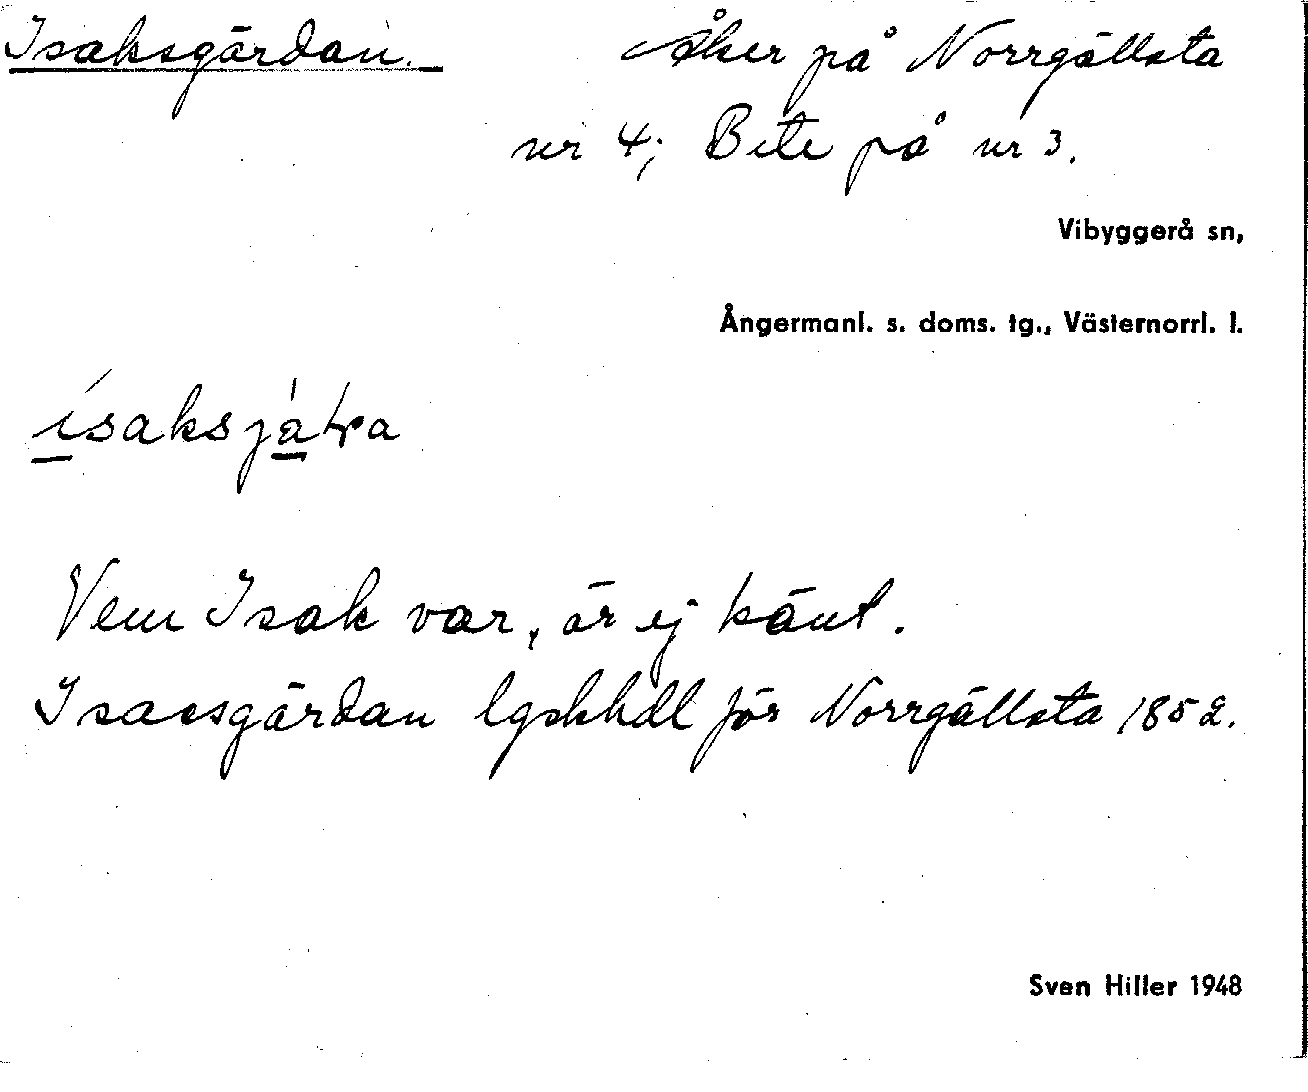 Isaksgärdan. Åker på Norrgällsta
nr 4; Bete på nr 3.
Vibyggerå sn,
Ångermanl. s. doms. tg., Västernorrl. l.
Vem Isak var, är ej känt.
Isacsgärdan lgskhdl för Norrgällsta 1852.
Sven Hiller 1948